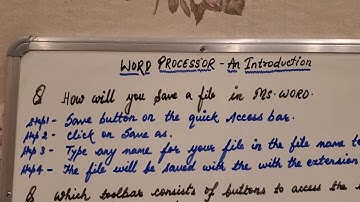 WORD PROCESSOR - An Introduction
Q How will you save a file in MS-WORD.
Step1- Save button on the quick Access bar.
Step 2- Click on Save as.
Step 3- Type any name for your file in the file name
Step4- The file will be saved with the with the extension
Q Which toolbar consists of buttons to access the